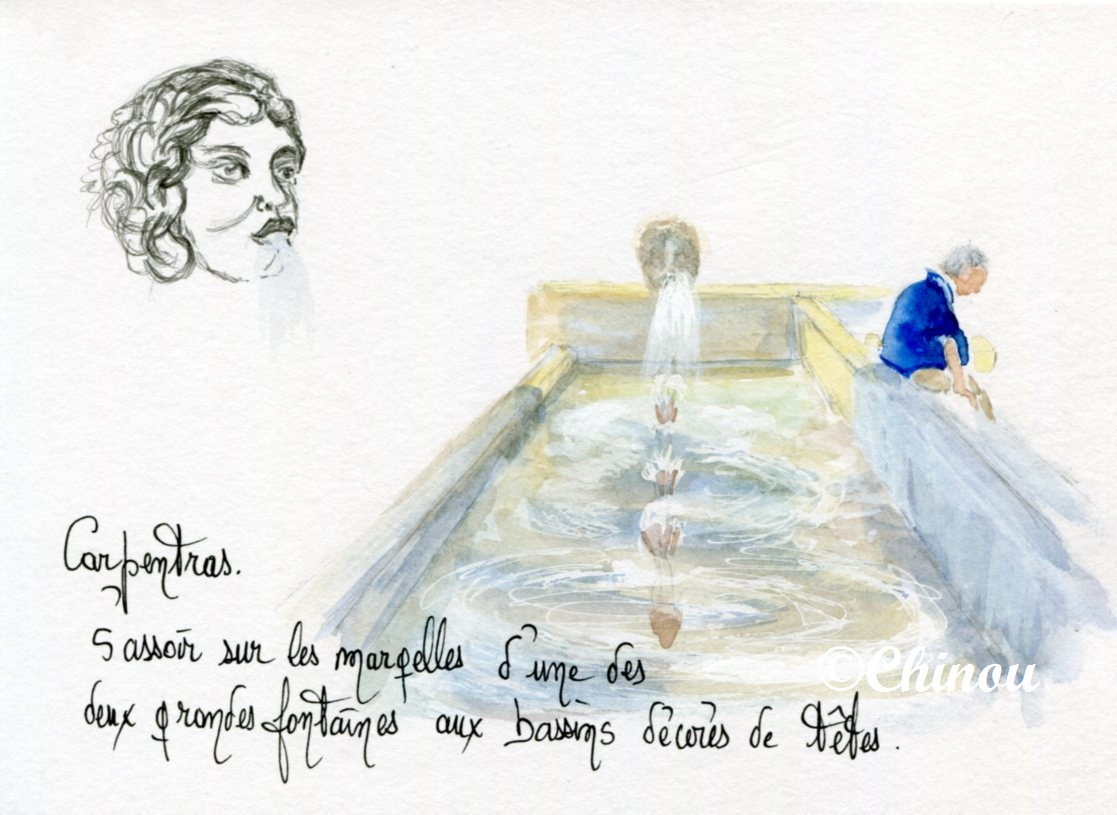 Carpentras.
S'assoir sur les margelles d'une des
©Chinou
deux grandes fontaines aux bassins décorés de têtes.